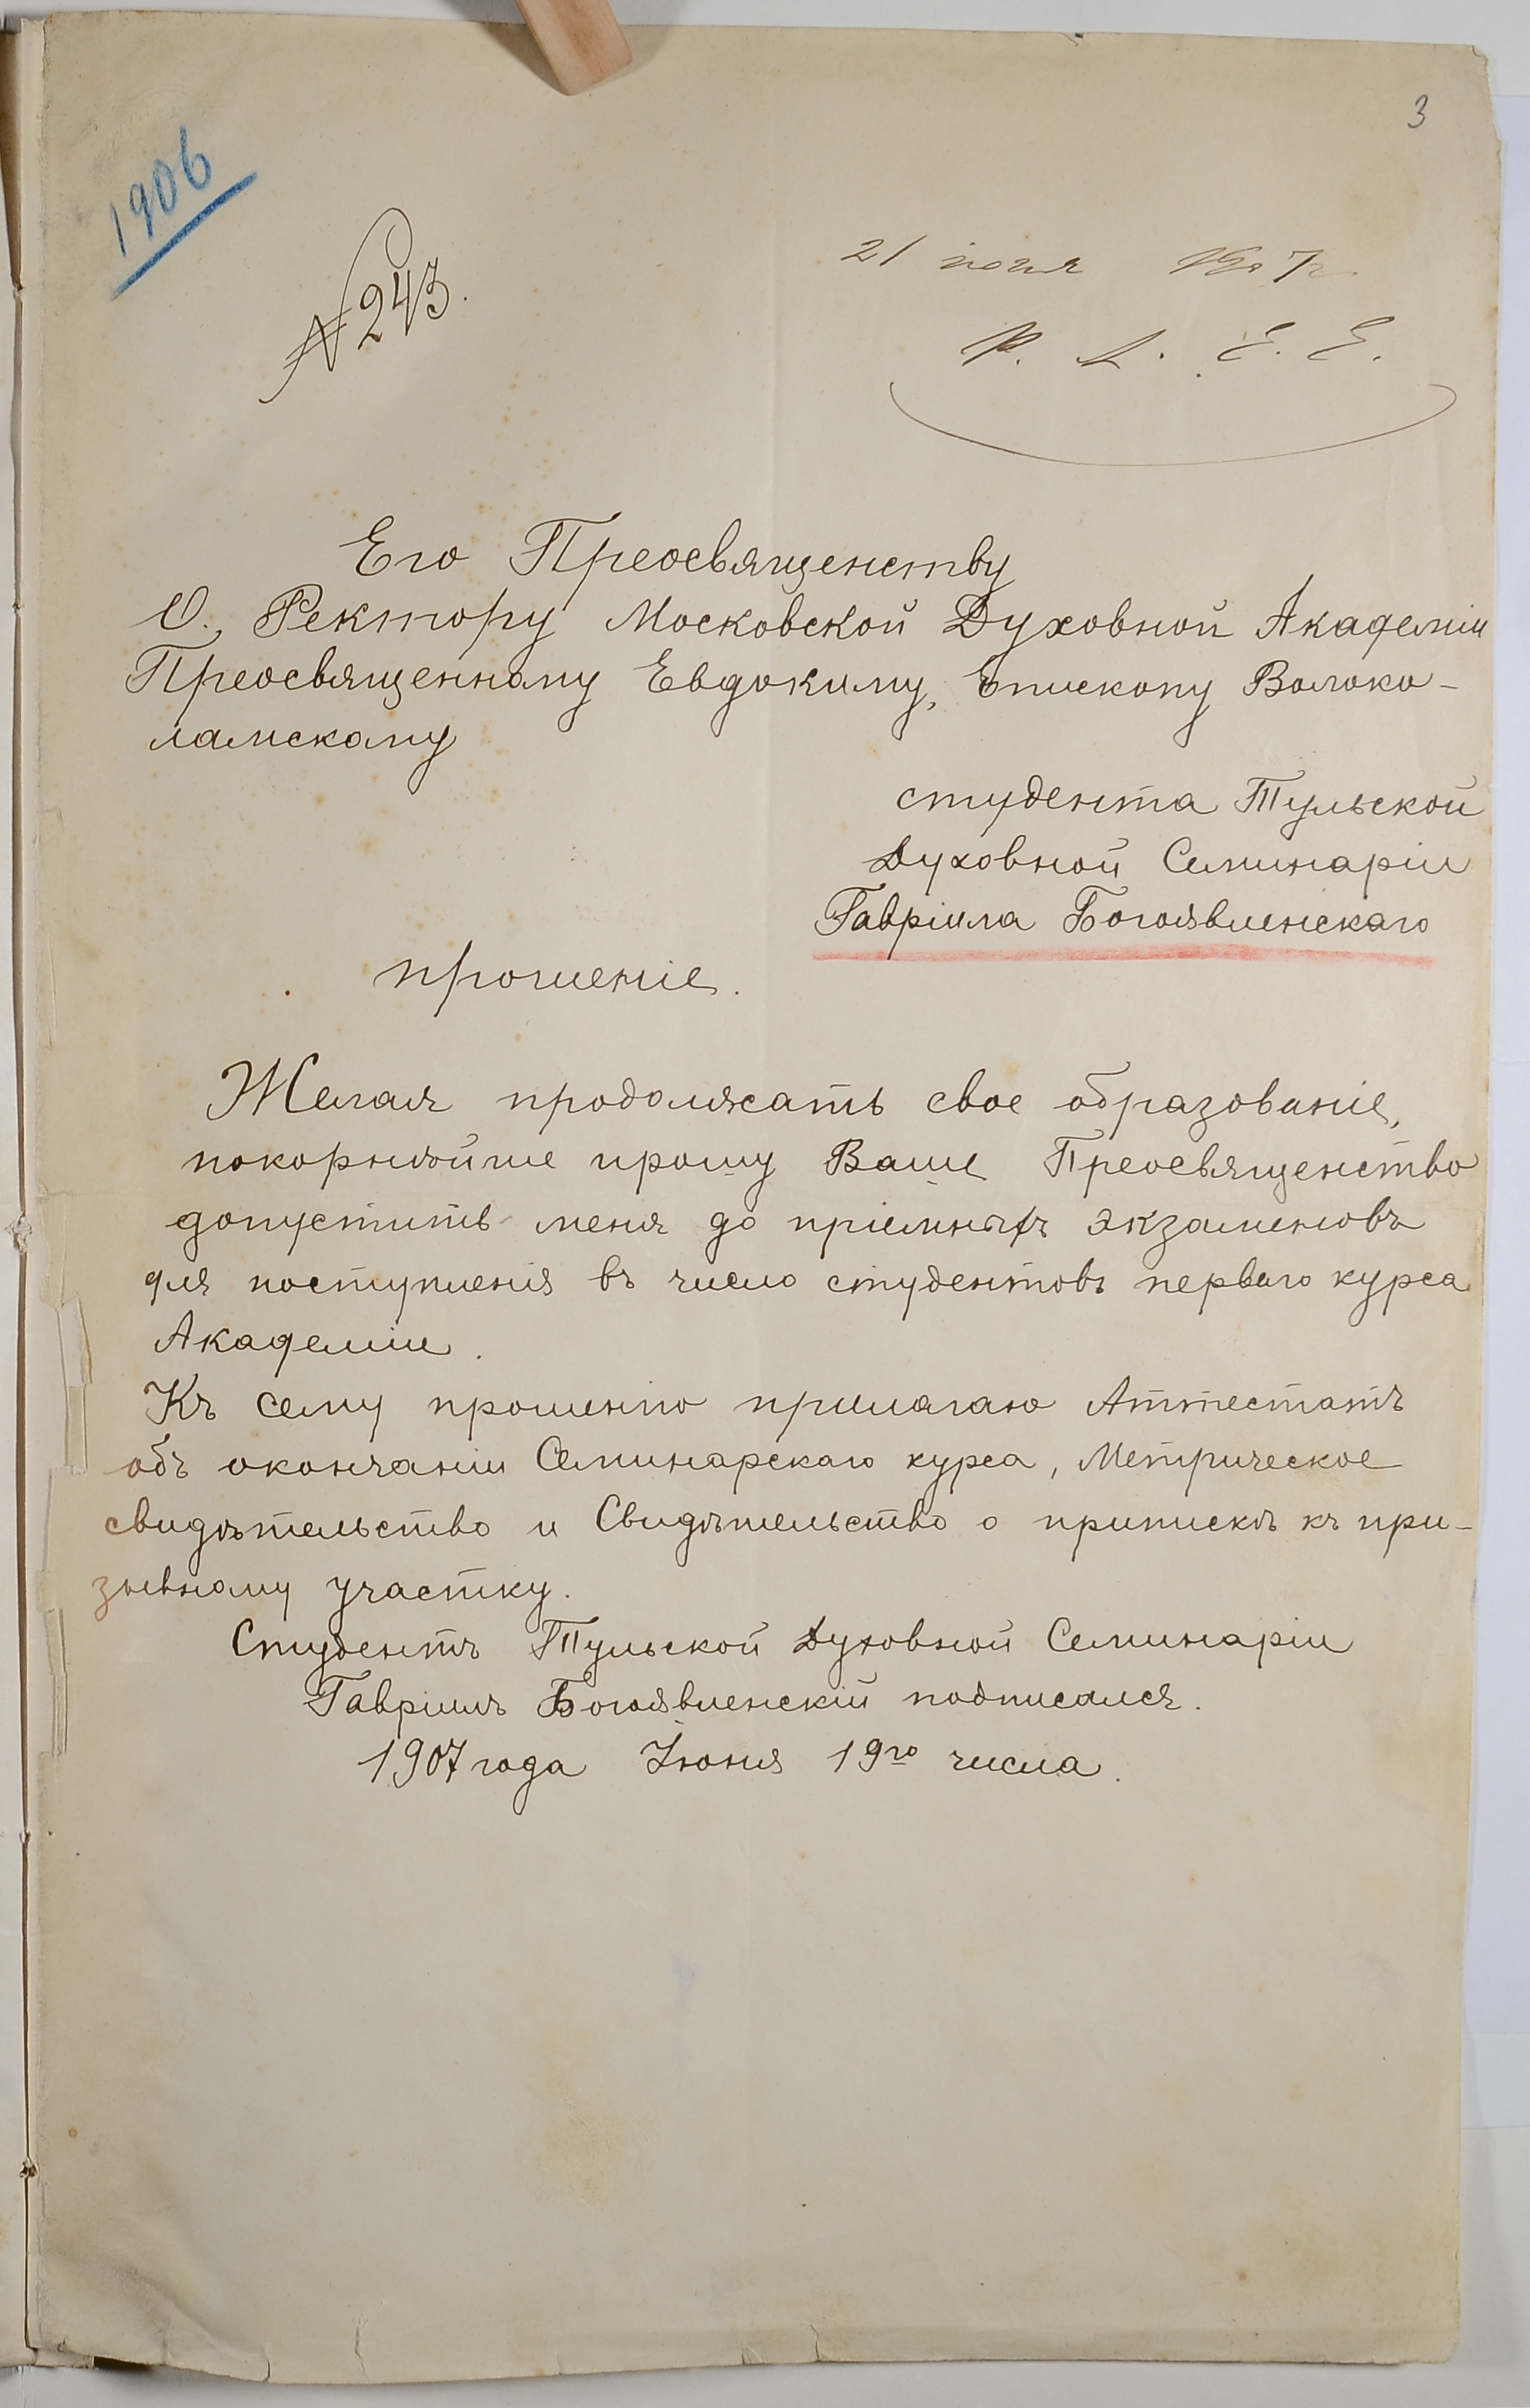 3
1906
№ 243.
21 июня 1907 г.
Р. А. Е. Е.
Его Преосвященству
О. Ректору Московской Духовной Академіи
Преосвященному Евдокиму, Епископу Волоко-
ламскому
студента Тульской
Духовной Семинаріи
Гавріила Богоявленскаго
прошеніе.
Желая продолжать свое образованіе,
покорнѣйше прошу Ваше Преосвященство
допустить меня до пріемныхъ экзаменовъ
для поступленія въ число студентовъ перваго курса
Академіи.
Къ сему прошенію прилагаю Аттестатъ
объ окончаніи Семинарскаго курса, Метрическое
свидѣтельство и Свидѣтельство о припискѣ къ при-
зывному участку.
Студентъ Тульской Духовной Семинаріи
Гавріилъ Богоявленскій подписался.
1907 года Іюня 19го числа.